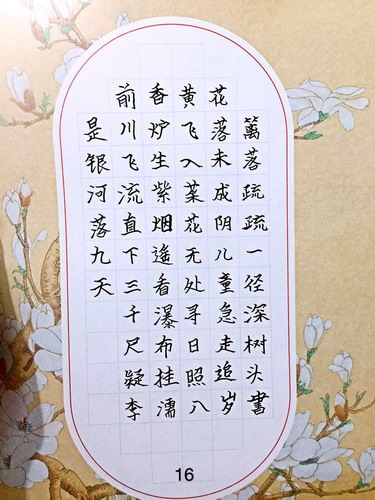 篱落疏疏一径深树头書
花落未成阴儿童急走追岁
黄飞入菜花无处寻日照八
香炉生紫烟遥看瀑布挂濡
前川飞流直下三千尺疑李
是银河落九天
16